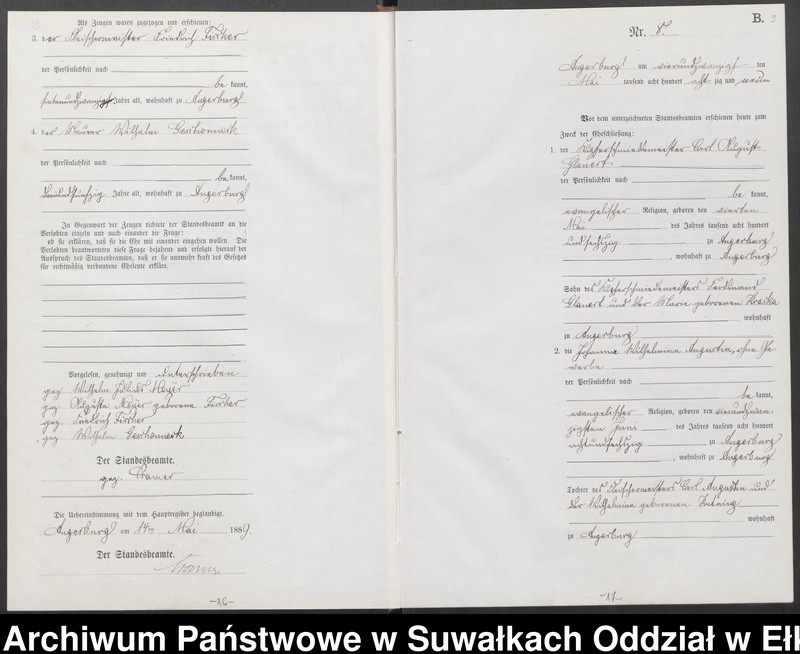 Als Zeugen waren zugezogen und erschienen:
3. der Fleischermeister Friedrich Fischer
der Persönlichkeit nach
be kannt,
siebenundzwanzig Jahre alt, wohnhaft zu Angerburg
4. der Maurer Wilhelm Geschonneck
der Persönlichkeit nach
be kannt,
dreiundfünfzig Jahre alt, wohnhaft zu Angerburg
In Gegenwart der Zeugen richtete der Standesbeamte an die
Verlobten einzeln und nach einander die Frage:
ob sie erklären, daß sie die Ehe mit einander eingehen wollen. Die
Verlobten beantworteten diese Frage bejahend und erfolgte hierauf der
Ausspruch des Standesbeamten, daß er sie nunmehr kraft des Gesetzes
für rechtmäßig verbundene Eheleute erkläre.
Vorgelesen, genehmigt und unterschrieben
gez. Wilhelm Meyer
gez. Auguste Meyer geborene Fischer
gez. Friedrich Fischer
gez. Wilhelm Geschonneck
Der Standesbeamte.
gez. Cramer
Die Uebereinstimmung mit dem Hauptregister beglaubigt.
Angerburg am 14ten Mai 1889.
Der Standesbeamte.
Cramer
-16-
B.
Nr. 8.
Angerburg am vierundzwanzigsten
Mai tausend acht hundert acht zig und neun
Vor dem unterzeichneten Standesbeamten erschienen heute zum
Zweck der Eheschließung:
1. der Kupferschmiedemeister Carl August
Glanert
der Persönlichkeit nach
be kannt,
evangelischer Religion, geboren den vierten
Mai des Jahres tausend acht hundert
undsechzig zu Angerburg
, wohnhaft zu Angerburg
Sohn des Kupferschmiedemeisters Ferdinand
Glanert und der Marie geborenen
wohnhaft
zu Angerburg
2. die Johanna Wilhelmine Augustin, ohne Ge
werbe
der Persönlichkeit nach
be kannt,
evangelischer Religion, geboren den vierundzwan
zigsten Juni des Jahres tausend acht hundert
achtundsechzig zu Angerburg
, wohnhaft zu Angerburg
Tochter des Fleischermeisters Carl Augustin und
der Wilhelmine geborenen
wohnhaft
zu Angerburg
-17-
Archiwum Państwowe w Suwałkach Oddział w Ełk